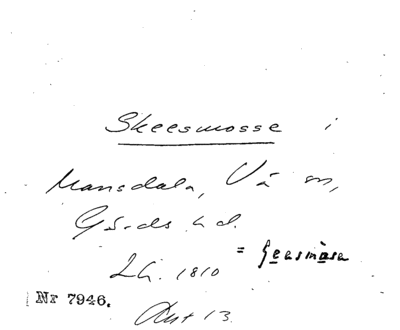 Skeesmosse i
Mansdala, Vä sn,
Gärds hd.
Lh. 1810 = geesmåsa
Nr 7946.
Akt 13.